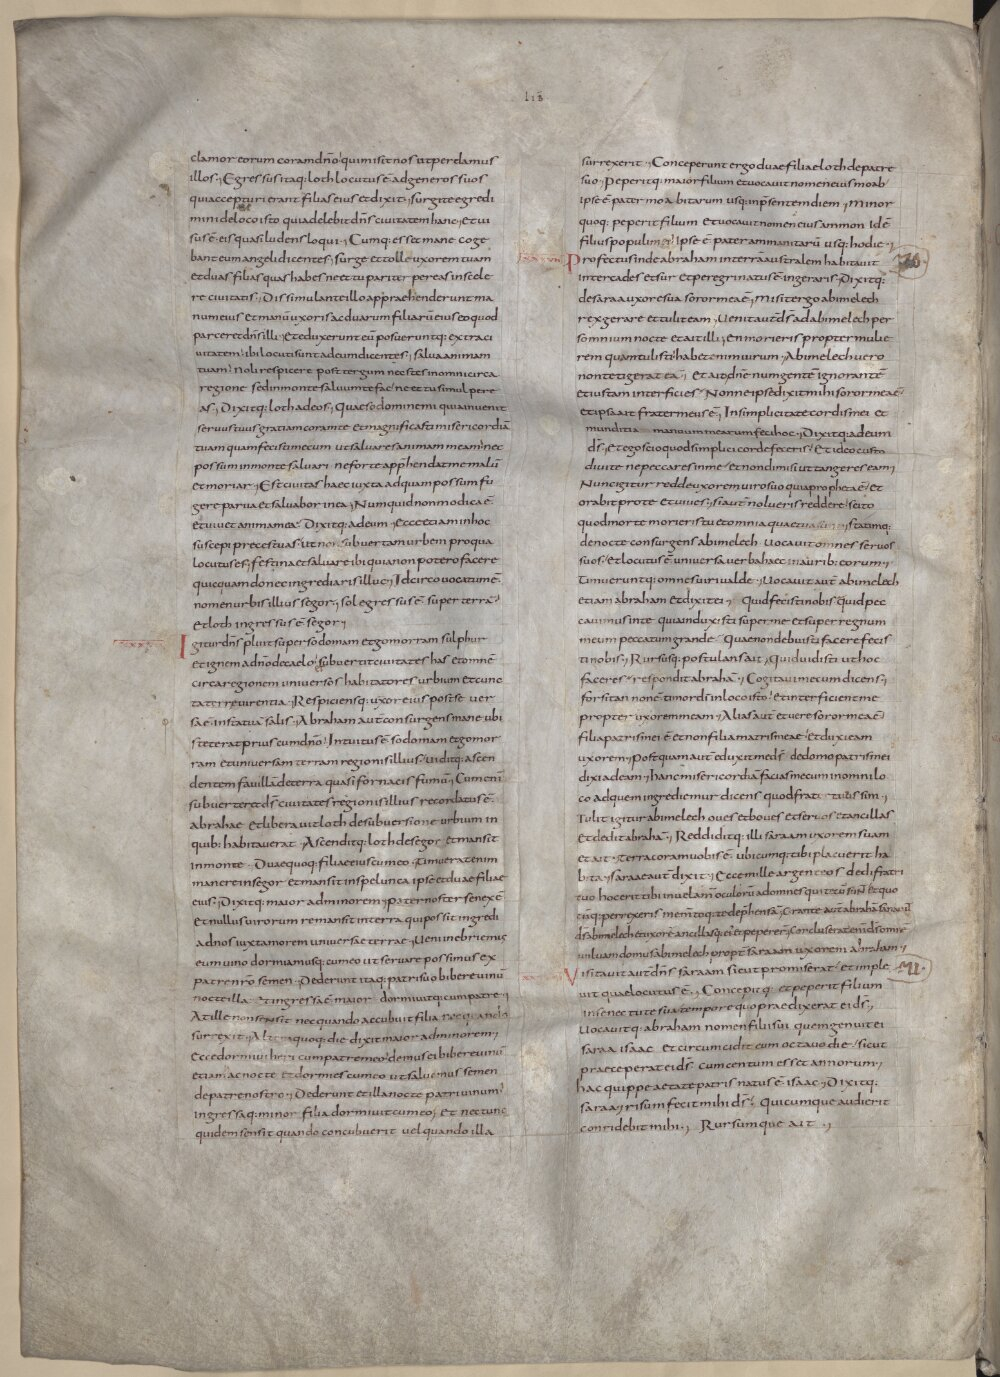 lib
clamor eorum coram dn̄o qui misit nos ut perdamus
illos; Egressus itaq; loth locutus ē ad generos suos
qui accepturi erant filias eius et dixit; surgite egredi
mini de loco isto quia delebit dn̄s civitatem hanc; Et vi
sus ē eis quasi ludens loqui; Cumq; esset mane coge
bant eum angeli dicentes; surge et tolle uxorem tuam
et duas filias quas habes ne et tu pariter pereas in scele
re civitatis; Dissimulante illo apprachenderunt ma
num eius et manū uxoris ac duarum filiarū eius eo quod
parceret dn̄s illi; Et eduxerunt eū posueruntq; extra ci
vitatem; ibi locuti sunt ad eum dicentes; salva animam
tuam; Noli respicere post tergum nec stes in omni circa
regione sed in monte salvum te fac ne et tu simul pere
as; Dixitq; loth ad eos; Quaeso domine mi quia invenit
servus tuus gratiam coram te et magnificasti misericordiā
tuam quam fecisti mecum ut salvares animam meam; nec
possum in monte salvari ne forte apphendat me malū
et moriar; Est civitas haec iuxta ad quam possum fu
gere parva et salvabor in ea; Numquid non modica ē
et vivet anima mea; Dixitq; ad eum; Ecce etiam in hoc
suscepi preces tuas; ut non subvertam urbem pro qua
locutus es; festina et salvare ibi quia non potero facere
quicquam donec ingrediaris illuc; Idcirco vocatum ē
nomen urbis illius segor; sol egressus ē super terrā
et loth ingressus ē segor;
Igitur dn̄s pluit super sodomam et gomorram sulphur
et ignem a dn̄o de caelo; subvertit civitates has et omnē
circa regionem universos habitatores urbium et cunc
ta terre virentia; Respiciensq; uxor eius post se ver
sa ē in statuā salis; Abraham aut̄ consurgens mane ubi
steterat prius cum dn̄o; Intuitus ē sodomam et gomor
ram et universam terram regionis illius; viditq; ascen
dentem favillā de terra quasi fornacis fumū; Cum enī
subverteret ds̄ civitates regionis illius recordatus ē
abrahae et liberavit loth de subversione urbium in
quib; habitaverat; Ascenditq; loth de segor et mansit
in monte; Duae quoq; filiae eius cum eo; timuerat enim
manere in segor et mansit in spelunca ipse et duae filiae
eius; Dixitq; maior ad minorem; pater noster senex ē
Et nullus virorum remansit in terra qui possit ingredi
ad nos iuxta morem universae terrae; Veni inebriemus
eum vino dormiamusq; cum eo ut servare possimus ex
patre nr̄o semen; Dederunt itaq; patri suo bibere vinū
nocte illa; Et ingressa ē maior dormivitq; cum patre;
At ille non sensit nec quando accubuit filia nec quando
surrexit; Altera quoq; die dixit maior ad minorem;
Ecce dormivi heri cum patre meo; demus ei bibere vinū
etiam ac nocte et dormies cum eo ut salvemus semen
de patre nostro; Dederunt et illa nocte patri vinum
ingressaq; minor filia dormivit cum eo; Et nec tunc
quidem sensit quando concubuerit vel quando illa
surrexerit; Conceperunt ergo duae filiae loth de patre
suo; Peperitq; maior filium et vocavit nomen eius moab
ipse ē pater moabitarum usq; in p̄sentem diem; Minor
quoq; peperit filium et vocavit nomen eius ammon id ē
filius populi mei; ipse ē pater ammanitarū usq; hodie;
Profectus inde abraham in terrā australem habitavit
inter cades et sur et peregrinatus ē in geraris; Dixitq;
de sara uxore sua soror mea ē; Misit ergo abimelech
rex gerare et tulit eam; Venit aut̄ ds̄ ad abimelech per
somnium nocte et ait illi; En morieris propter mulie
rem quam tulisti; habet enim virum; Abimelech vero
non tetigerat eā; Et ait; dn̄e num gentem ignorantē
et iustam interficies; Nonne ipse dixit mihi soror mea ē
et ipsa ait frater meus ē; In simplicitate cordis mei et
munditia manuum mearum feci hoc; Dixitq; ad eum
ds̄; Et ego scio quod simplici corde feceris; Et ideo custo
divi te ne peccares in me; et non dimisi ut tangeres eam;
Nunc igitur redde uxorem viro suo quia propheta ē; et
orabit pro te et vives; si aut̄ nolueris reddere; scito
quod morte morieris tu et omnia quae tua sunt; statimq;
de nocte consurgens abimelech vocavit omnes servos
suos; et locutus ē universa verba haec in aurib; eorum;
timueruntq; omnes viri valde; Vocavit aut̄ abimelech
etiam abraham et dixit ei; Quid fecisti nobis quid pec
cavimus in te quia induxisti super me et super regnum
meum peccatum grande; Quae non debuisti facere fecis
ti nobis; Rursusq; postulans ait; Quid vidisti ut hoc
faceres; respondit abrahā; Cogitavi mecum dicens;
forsitan non ē timor dn̄i in loco isto; et interficient me
propter uxorem meam; Alias aut̄ et vere soror mea ē
filia patris mei ē et non filia matris meae; et duxi eam
uxorem; Postquam aut̄ eduxit me ds̄ de domo patris mei
dixi ad eam; hanc misericordiā facias mecum in omni lo
co ad quem ingrediemur dicens quod frater tuus sim;
Tulit igitur abimelech oves et boves et servos et ancillas
Et dedit abrahā; Reddiditq; illi saraam uxorem suam
et ait; terra coram vobis ē ubicumq; tibi placuerit ha
bita; saraae aut̄ dixit; Ecce mille argenteos dedi fratri
tuo hoc erit tibi in velam̄ oculorū ad omnes qui tecū sunt et quo
cūq; perrexeris memtoq; te dephensā; Orante aut̄ abrahā sanavit
ds̄ abimelech et uxorē ancillasq; ei; et pepererr̄; Concluserat enī ds̄ omnē
vulvam domus abimelech propt̄ saraam uxorem abraham;
Visitavit aut̄ dn̄s saraam sicut promiserat; et imple
vit quae locutus ē; Concepitq; et peperit filium
in senectute sua tempore quo praedixerat ei ds̄;
Vocavitq; abraham nomen filii sui quem genuit ei
saraa isaac et circumcidit eum octavo die; sicut
praeceperat ei ds̄ cum centum esset annorum;
hac quippe aetate patris natus ē isaac; Dixitq;
saraa; risum fecit mihi ds̄; Quicumque audierit
conridebit mihi; Rursumque ait;